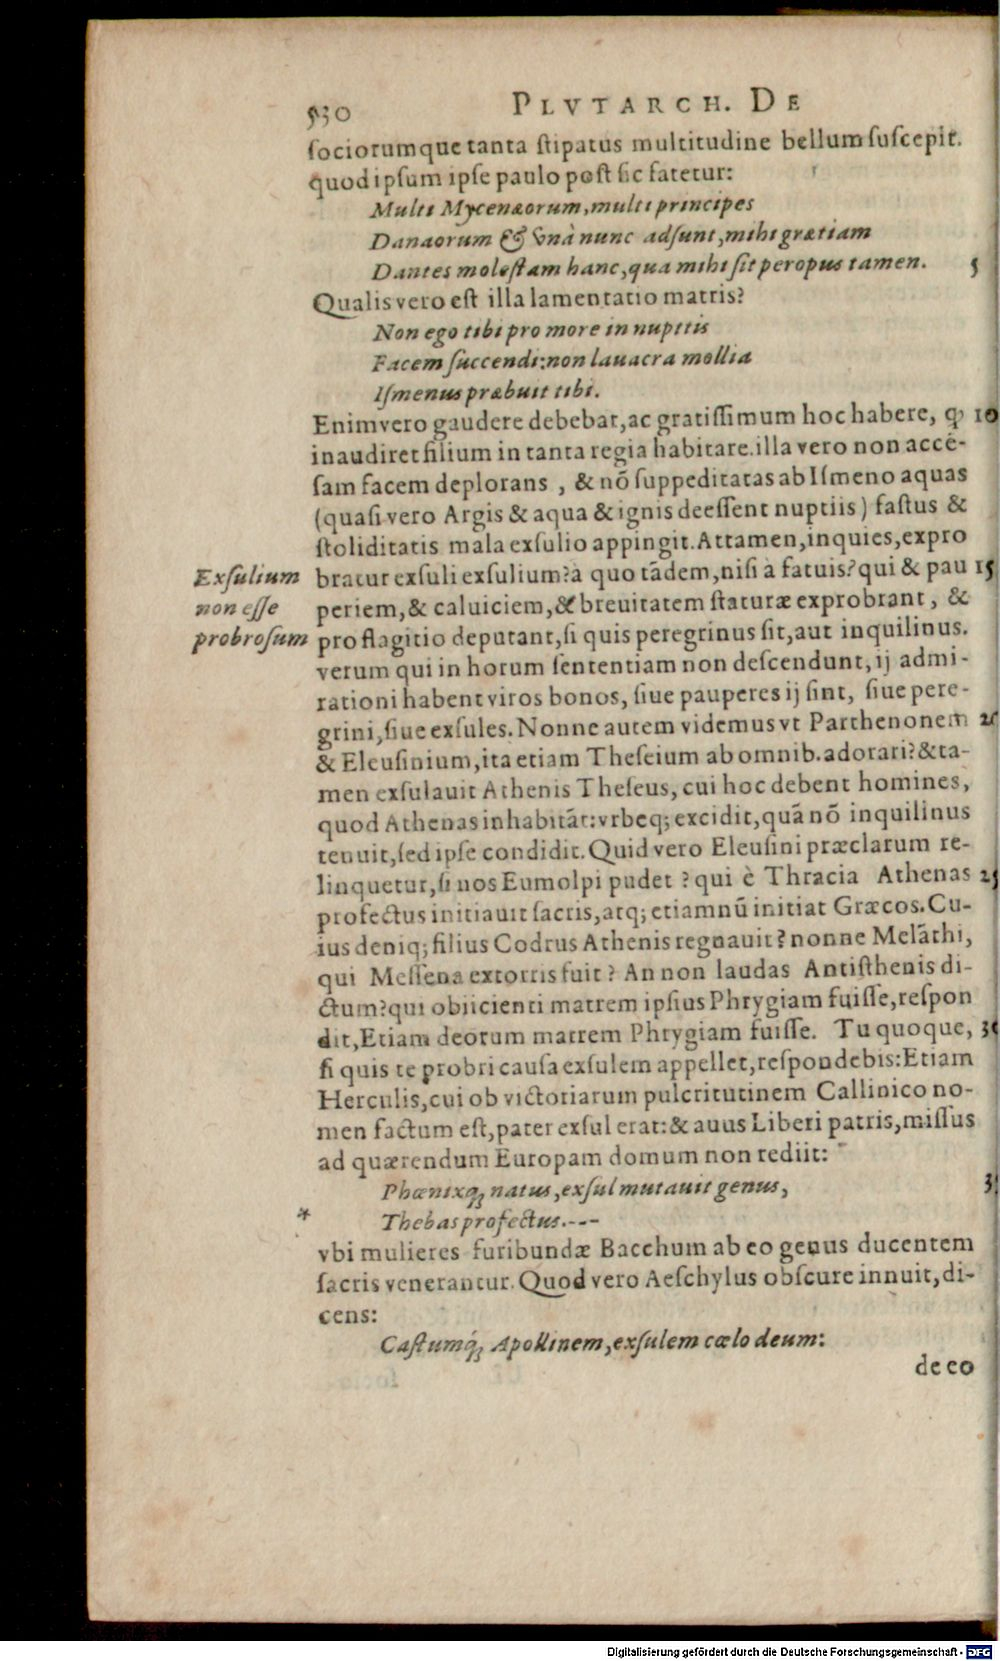 530 PLVTARCH. DE
ſociorumque tanta ſtipatus multitudine bellum ſuſcepit.
quod ipſum ipſe paulo poſt ſic fatetur:
Multi Mycenæorum, multi principes
Danaorum & vnà nunc adſunt, mihi gratiam
Dantes moleſtam hanc, qua mihi ſit peropus tamen. 5
Qualis vero eſt illa lamentatio matris?
Non ego tibi pro more in nuptiis
Facem ſuccendi: non lauacra mollia
Iſmenus præbuit tibi.
Enimvero gaudere debebat, ac gratiſſimum hoc habere, ꝙ 10
inaudiret filium in tanta regia habitare. illa vero non accē-
ſam facem deplorans , & nō ſuppeditatas ab Iſmeno aquas
(quaſi vero Argis & aqua & ignis deeſſent nuptiis) faſtus &
ſtoliditatis mala exſulio appingit. Attamen, inquies, expro
Exſulium bratur exſuli exſulium? à quo tādem, niſi à fatuis? qui & pau 15
non eſſe periem, & caluiciem, & breuitatem ſtaturæ exprobrant, &
probroſum pro flagitio deputant, ſi quis peregrinus ſit, aut inquilinus.
verum qui in horum ſententiam non deſcendunt, ij admi-
rationi habent viros bonos, ſiue pauperes ij ſint, ſiue pere-
grini, ſiue exſules. Nonne autem videmus vt Parthenonem
& Eleuſinium, ita etiam Theſeium ab omnib. adorari? & ta-
men exſulauit Athenis Theſeus, cui hoc debent homines,
quod Athenas inhabitāt: vrbeq; excidit, quā nō inquilinus
tenuit, ſed ipſe condidit. Quid vero Eleuſini præclarum re-
linquetur, ſi nos Eumolpi pudet ? qui è Thracia Athenas 25
profectus initiauit ſacris, atq; etiamnū initiat Græcos. Cu-
ius deniq; filius Codrus Athenis regnauit? nonne Melāthi,
qui Meſſena extorris fuit ? An non laudas Antiſthenis di-
ctum? qui obiicienti matrem ipſius Phrygiam fuiſſe, reſpon
dit, Etiam deorum matrem Phrygiam fuiſſe. Tu quoque,
ſi quis te probri cauſa exſulem appellet, reſpondebis: Etiam
Herculis, cui ob victoriarum pulcritutinem Callinico no-
men factum eſt, pater exſul erat: & auus Liberi patris, miſſus
ad quærendum Europam domum non rediit:
Phœnixq; natus, exſul mutauit genus,
* Thebas profectus.---
vbi mulieres furibundæ Bacchum ab eo genus ducentem
ſacris venerantur. Quod vero Aeſchylus obſcure innuit, di-
cens:
Caſtumq́; Apollinem, exſulem cœlo deum:
de eo
Digitalisierung gefördert durch die Deutsche Forschungsgemeinschaft - DFG